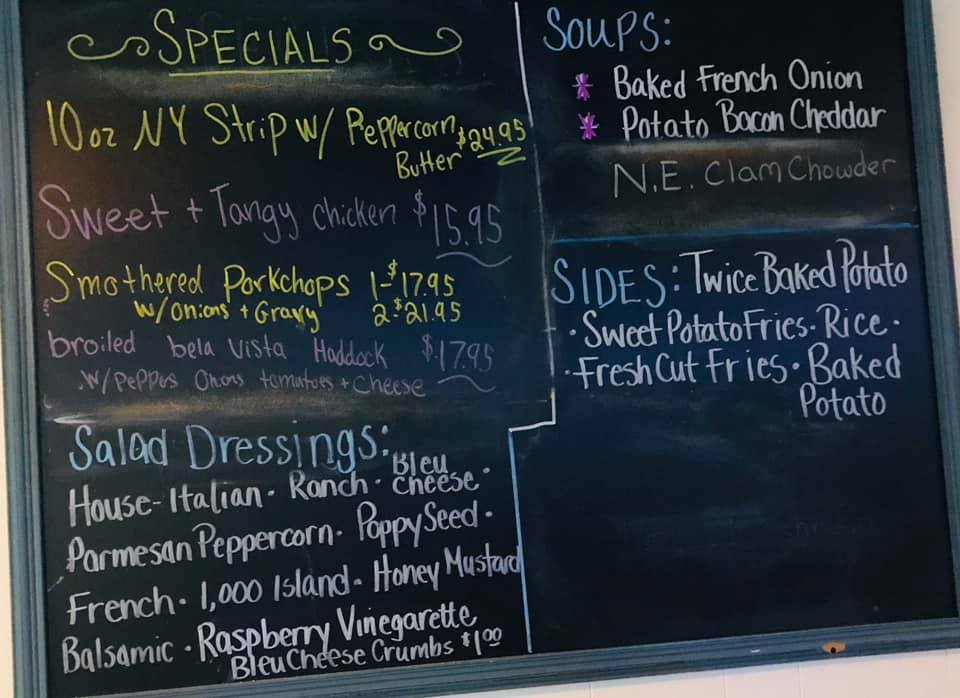 SPECIALS
10 oz NY Strip w/ Peppercorn $24.95
Butter
Sweet + Tangy chicken $15.95
Smothered Porkchops 1-$17.95
w/ onions + Gravy 2-$21.95
broiled bela Vista Haddock $17.95
w/ Peppos Onions tomatoes + Cheese
Salad Dressings:
House-Italian · Ranch · Bleu Cheese ·
Parmesan Peppercorn · Poppy Seed ·
French · 1,000 Island · Honey Mustard
Balsamic · Raspberry Vinegarette
Bleu Cheese Crumbs $1.00
SOUPS:
Baked French Onion
Potato Bacon Cheddar
N.E. Clam Chowder
SIDES: Twice Baked Potato
· Sweet Potato Fries · Rice ·
· Fresh Cut Fries · Baked
Potato